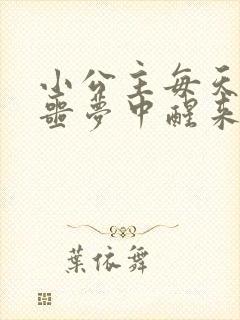 小公主每天
噩梦中醒来
葉依舞